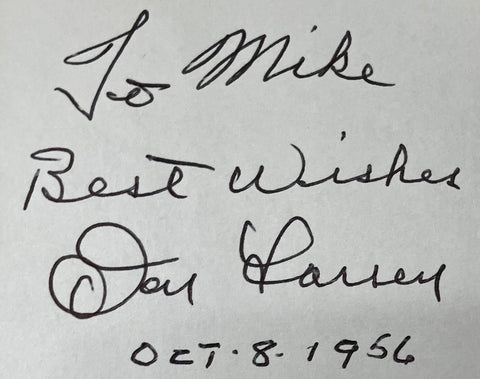 To Mike
Best Wishes
Don Larsen
OCT. 8. 1956